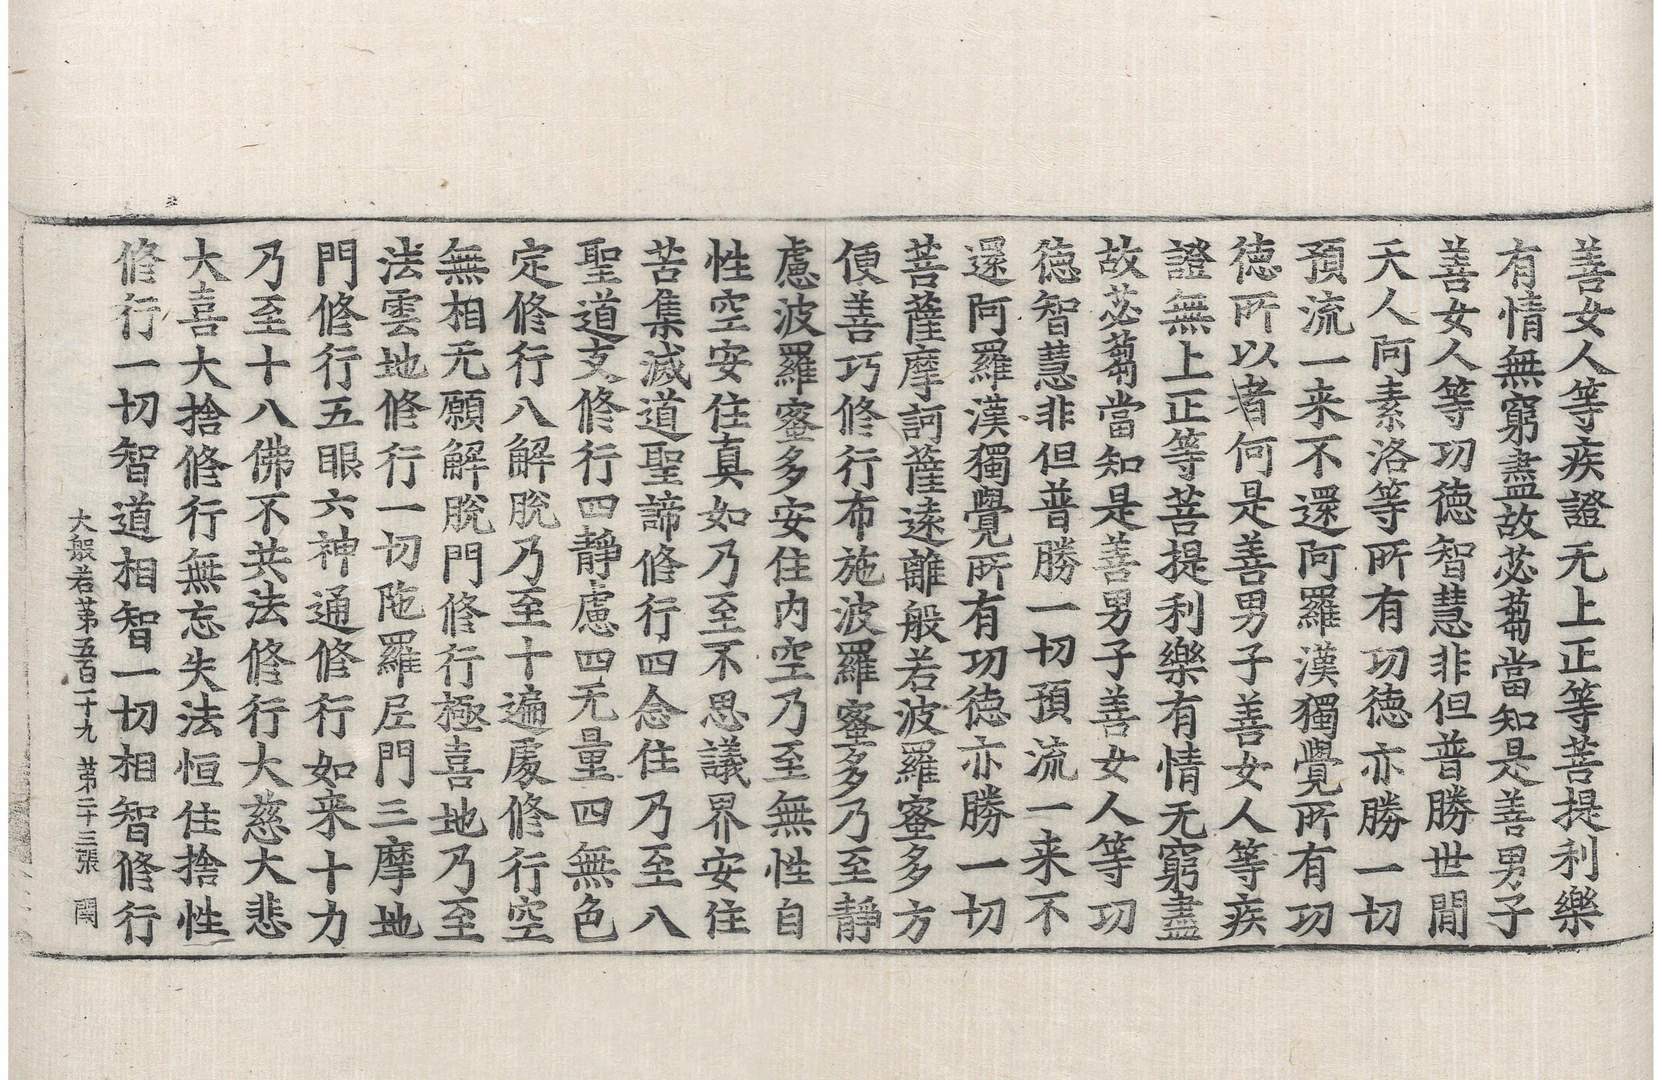 善女人等疾證无上正等菩提利樂
有情無窮盡故苾蒭當知是善男子
善女人等功德智慧非但普勝世間
天人阿素洛等所有功德亦勝一切
預流一来不還阿羅漢獨覺所有功
德所以者何是善男子善女人等疾
證無上正等菩提利樂有情无窮盡
故苾蒭當知是善男子善女人等功
德智慧非但普勝一切預流一来不
還阿羅漢獨覺所有功德亦勝一切
菩薩摩訶薩遠離般若波羅蜜多方
便善巧修行布施波羅蜜多乃至靜
慮波羅蜜多安住内空乃至無性自
性空安住真如乃至不思議界安住
苦集滅道聖諦修行四念住乃至八
聖道支修行四靜慮四无量四無色
定修行八解脫乃至十遍處修行空
無相无願解脫門修行極喜地乃至
法雲地修行一切陁羅尼門三摩地
門修行五眼六神通修行如来十力
乃至十八佛不共法修行大慈大悲
大喜大捨修行無忘失法恒住捨性
修行一切智道相智一切相智修行
大般若苐五百一十九 苐二十三張 闕